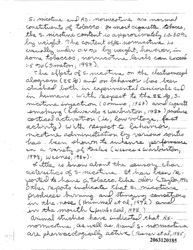 S-nicotine and R-nicotine are normal
constituents of tobacco. In most cigarette tobaccos,
the S-nicotine content is approximately 1.5-2.5%
by weight. The content of R-nicotine is
usually under 0.1% by weight; however, in
some tobaccos, nornicotine levels can exceed
The effects of S-nicotine on the electroenceph-
alogram (EEG) and on behavior have been
studied both in experimental animals and
in humans. With respect to the EEG, S-
nicotine injection (Domino, 1967) and cigarette
smoking (Edwards & Warburton, 1983) produce
cortical activation (i.e., low voltage, fast
activity). With respect to behavior, S-
nicotine administration by various routes
has been shown to enhance performance
on a variety of tasks (Wesnes & Warburton,
1984; Wesnes, 1987).
Little is known about the sensory char-
acteristics of S-nicotine. It has been re-
ported to have a tobacco-like odor
Other reports indicate that S-nicotine
produces burning and stinging sensations
in the nose
in the mouth
Animal studies have indicated that R-
nicotine, as well as S-nicotine
are pharmacologically active
2063120185